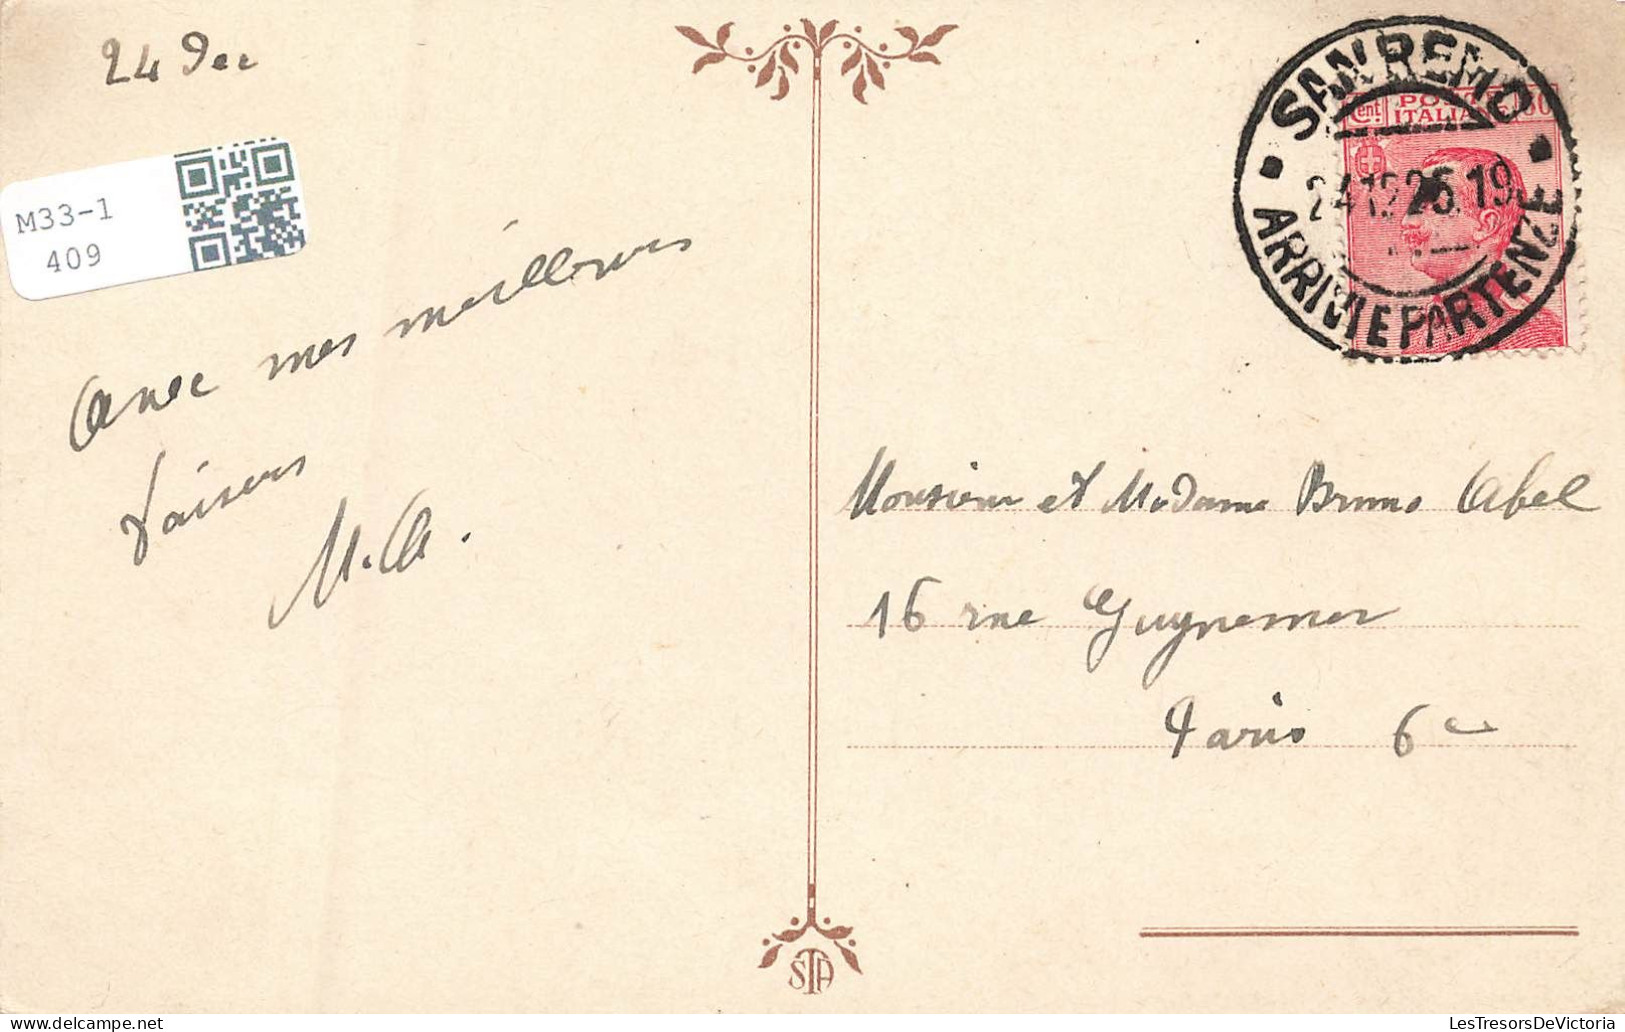 24 Dec
M33-1
409
Avec mes meilleurs
baisers
M. A.
SAN REMO
Cent. POSTE 60
ITALIANE
24.12.26.19
ARRIVI E PARTENZE
Monsieur et Madame Bruno Abel
16 rue Guynemer
Paris 6e
STA
LesTresorsDeVictoria